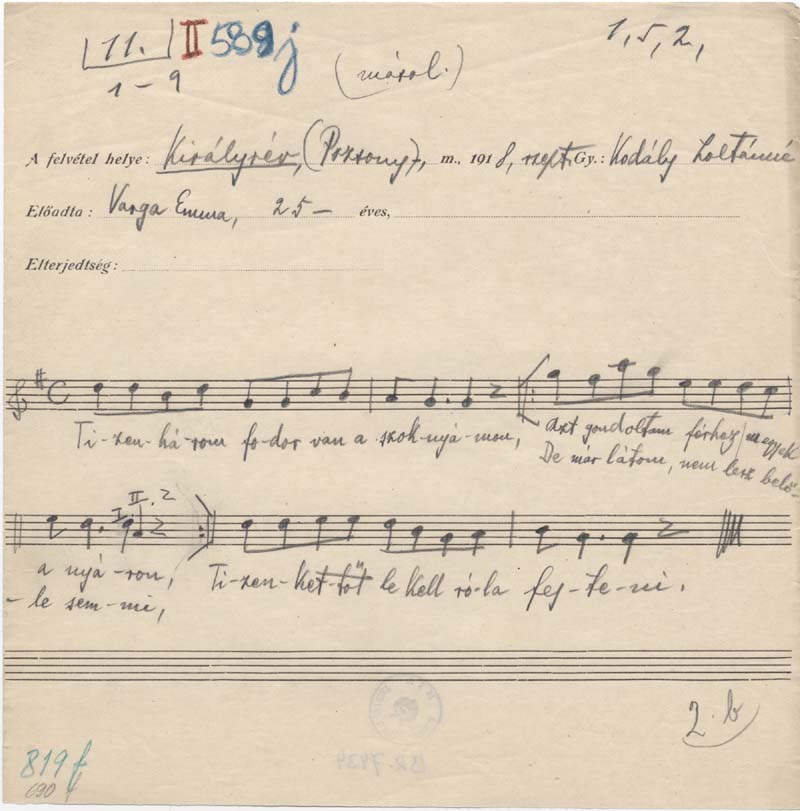 11. II 589j 1, 5, 2,
1-9 (másol.)
A felvétel helye: Királyrév, (Pozsony), m., 1918, szept. Gy.: Kodály Zoltánné
Előadta: Varga Emma, 25- éves,
Elterjedtség:
Ti-zen-há-rom fo-dor van a szok-nyá-mon, azt gondoltam férhez megyek
De már látom, nem lesz belő-
I. II. 2
a nyá-ron, Ti-zen-ket-tőt le kell ró-la fej-te-ni.
-le sem-mi,
2. b
819 f